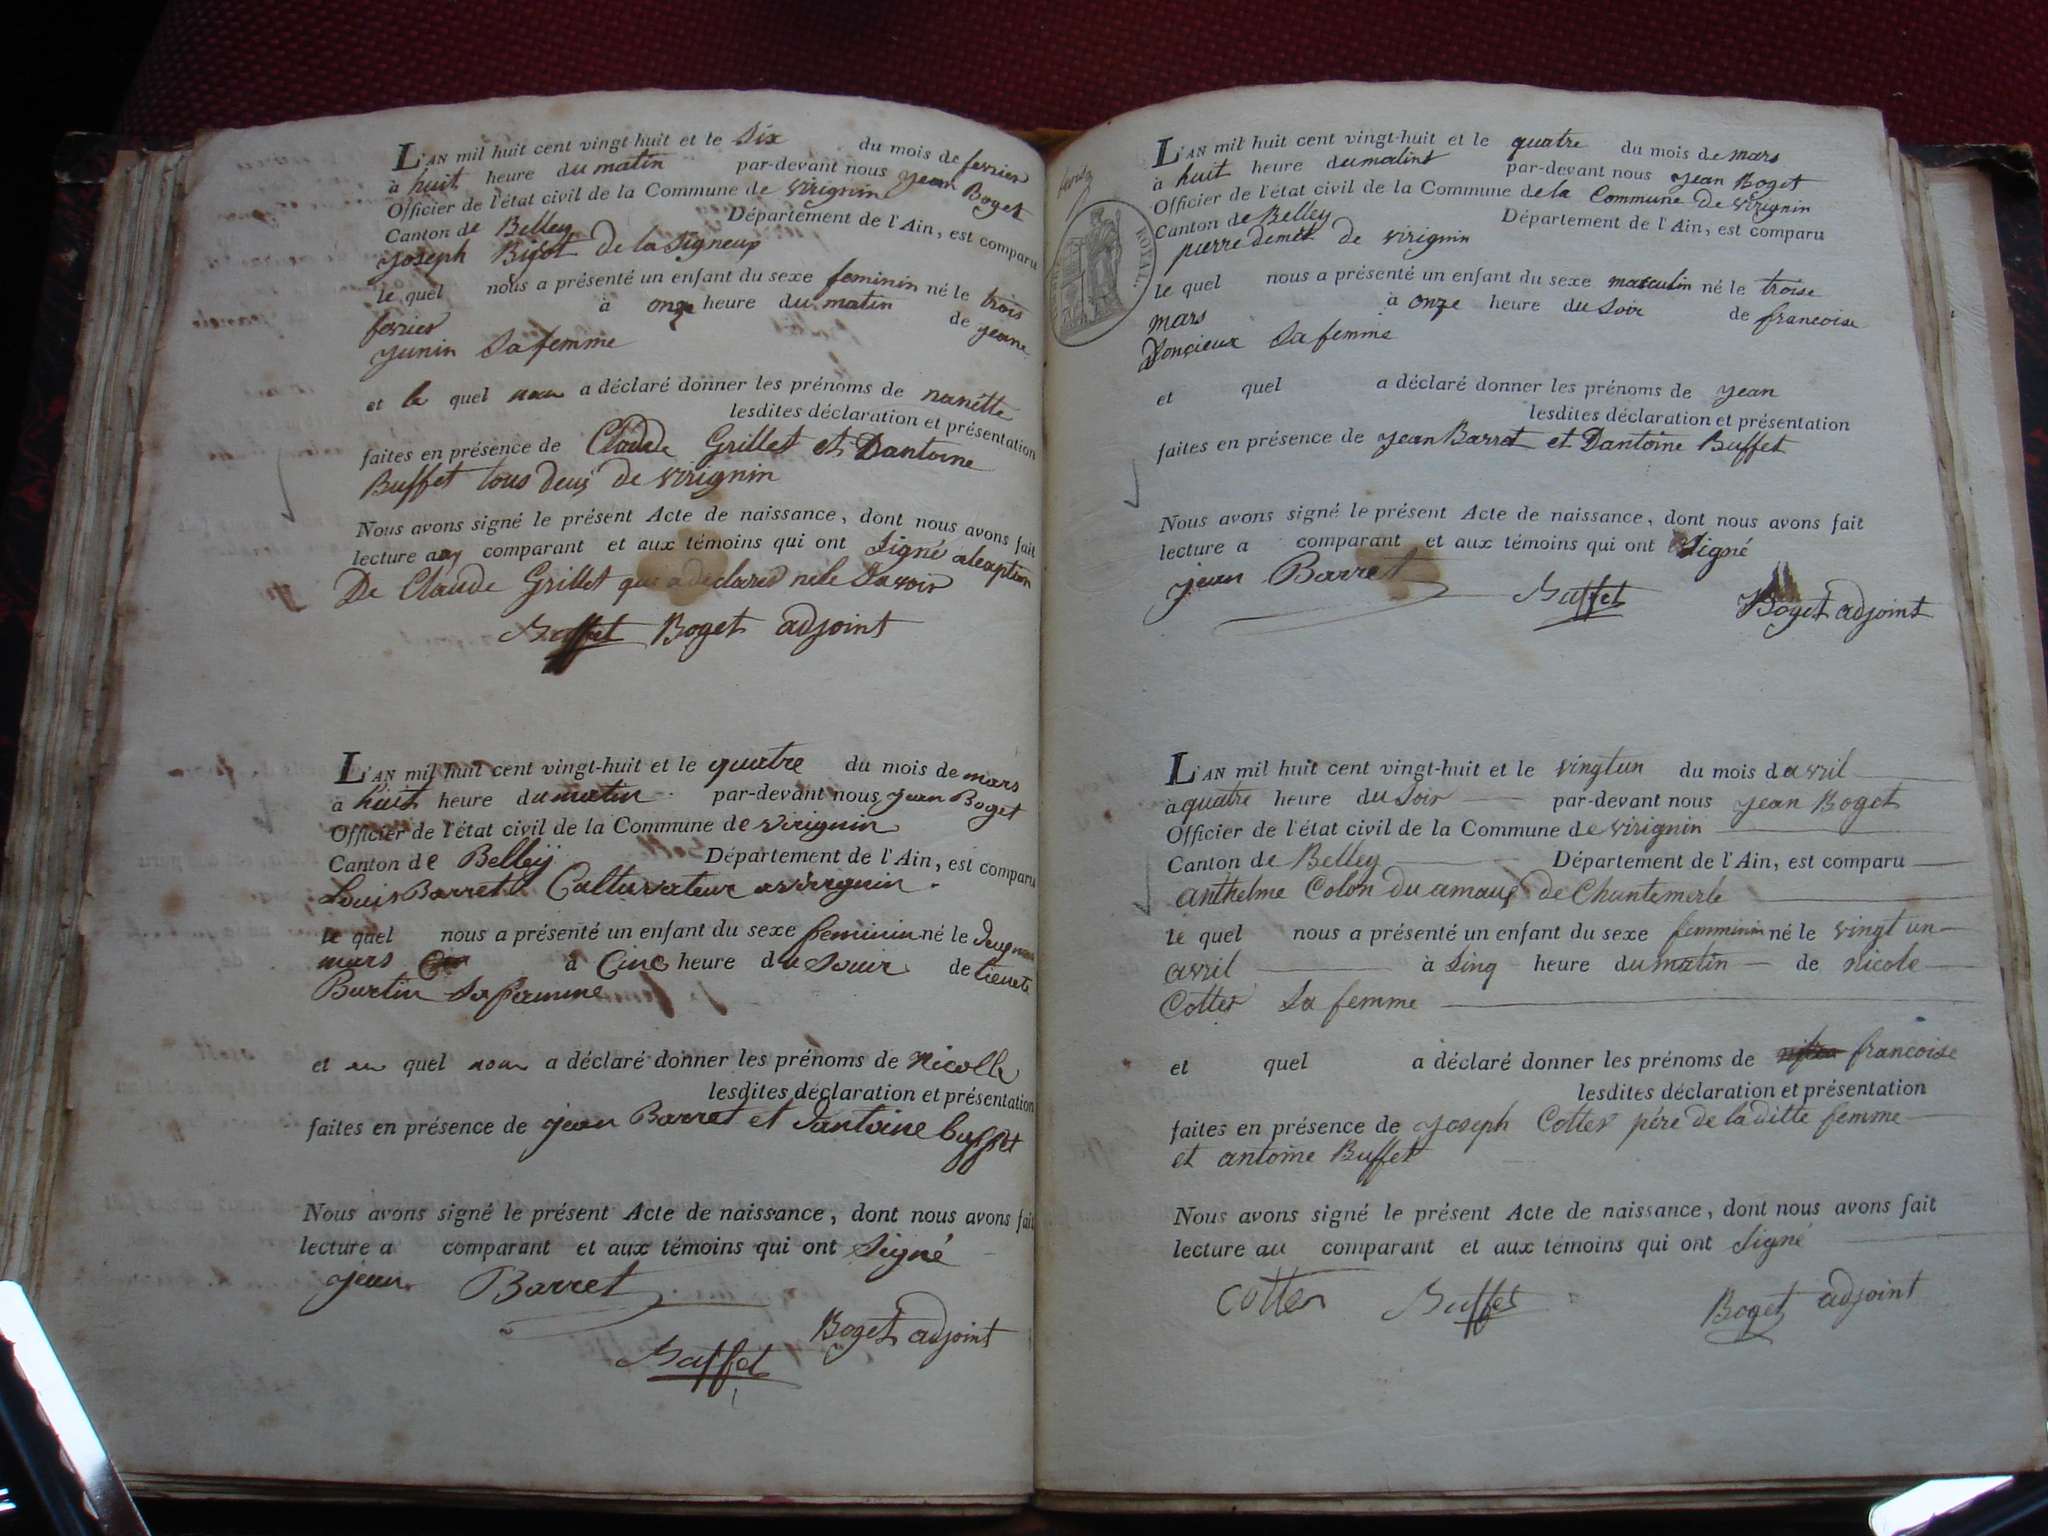 L'AN mil huit cent vingt-huit et le Six du mois de fevrier
à huit heure du matin par-devant nous Jean Boget
Officier de l'état civil de la Commune de virignin
Canton de Belley Département de l'Ain, est comparu
Joseph de la
le quel nous a présenté un enfant du sexe feminin né le trois
fevrier à onze heure du matin de jeane
junin Sa femme
et le quel nous a déclaré donner les prénoms de nanette
lesdites déclaration et présentation
faites en présence de Claude Grillet et Dantoine
Buffet tous deux de virignin
Nous avons signé le présent Acte de naissance, dont nous avons fait
lecture au comparant et aux témoins qui ont Signé aleaption
De Claude Grillet qui a declared nele Savoir
Buffet Boget adjoint
L'AN mil huit cent vingt-huit et le quatre du mois de mars
à huit heure du matin par-devant nous jean Boget
Officier de l'état civil de la Commune de virignin
Canton de Belley Département de l'Ain, est comparu
Louis Barret Cultuvateur a virignin
le quel nous a présenté un enfant du sexe feminin né le
mars à Cinc heure du Souir de tienete
Burtin Sa famme
et quel nous a déclaré donner les prénoms de Nicolle
lesdites déclaration et présentation
faites en présence de jean Barret et dantoine buffet
Nous avons signé le présent Acte de naissance, dont nous avons fait
lecture a comparant et aux témoins qui ont Signé
jean Barret
Boget adjoint
Buffet
ROYAL.
L'AN mil huit cent vingt-huit et le quatre du mois de mars
à huit heure du matint par-devant nous jean Boget
Officier de l'état civil de la Commune de la Commune de virignin
Canton de Belley Département de l'Ain, est comparu
pierre demet de virignin
le quel nous a présenté un enfant du sexe masculin né le troise
mars à onze heure du Soir de francoise
Doncieux Sa femme
et quel a déclaré donner les prénoms de jean
lesdites déclaration et présentation
faites en présence de jean Barret et Dantoine Buffet
Nous avons signé le présent Acte de naissance, dont nous avons fait
lecture a comparant et aux témoins qui ont Signé
jean Barret Buffet Boget adjoint
L'AN mil huit cent vingt-huit et le vingtun du mois d avril
à quatre heure du Soir par-devant nous jean Boget
Officier de l'état civil de la Commune de virignin
Canton de Belley Département de l'Ain, est comparu
anthelme Colon du de Chantemerle
le quel nous a présenté un enfant du sexe femminin né le vingt un
avril à Sinq heure du matin de nicole
Cotter Sa femme
et quel a déclaré donner les prénoms de francoise
lesdites déclaration et présentation
faites en présence de joseph Cotter pére de laditte femme
et antoine Buffet
Nous avons signé le présent Acte de naissance, dont nous avons fait
lecture au comparant et aux témoins qui ont Signé
Cotter Buffet Boget adjoint